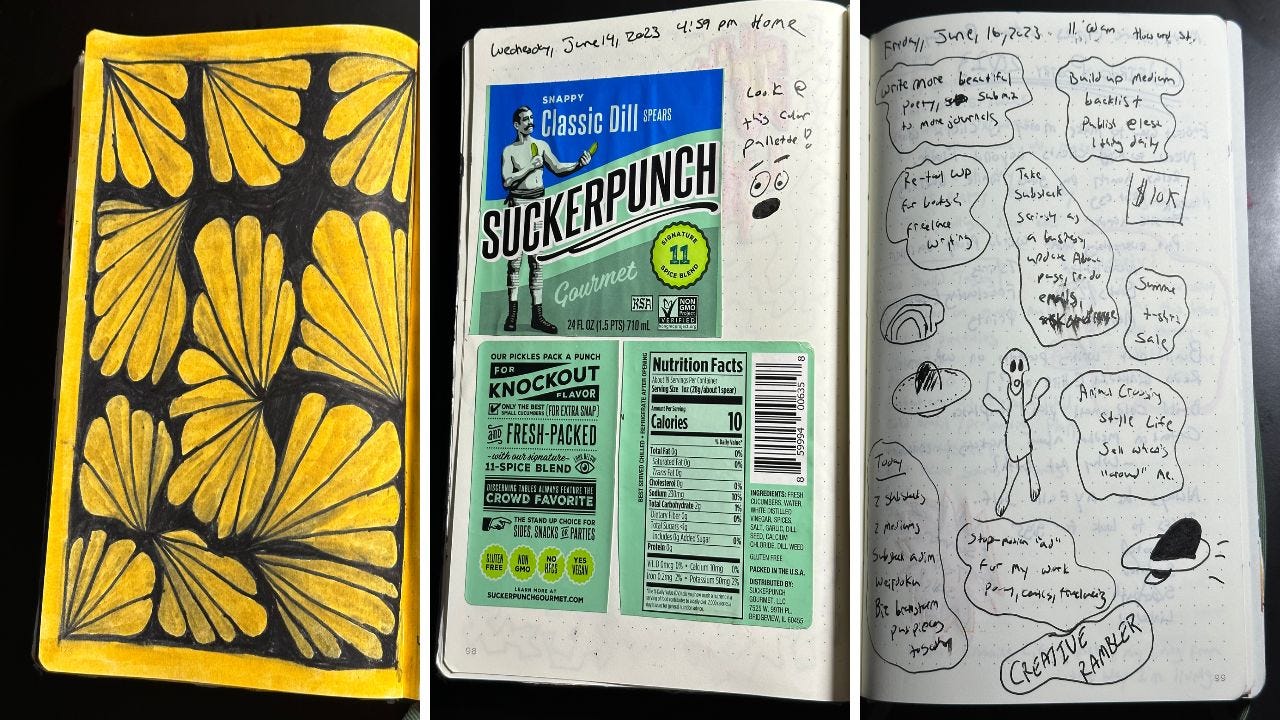 Wednesday, June 14, 2023 4:59 pm Home
SNAPPY
Classic Dill SPEARS
SUCKERPUNCH
Gourmet
SIGNATURE
11
SPICE BLEND
KSA
NON
GMO
Project
VERIFIED
nongmoproject.org
24 FL OZ (1.5 PTS) 710 mL
Look @
this color
pallette!
OUR PICKLES PACK A PUNCH
FOR
KNOCKOUT
FLAVOR
ONLY THE BEST
SMALL CUCUMBERS (FOR EXTRA SNAP)
AND FRESH-PACKED
-with our signature-
11-SPICE BLEND
DISCERNING TABLES ALWAYS FEATURE THE
CROWD FAVORITE
THE STAND UP CHOICE FOR
SIDES, SNACKS OR PARTIES
GLUTEN
FREE
NON
GMO
NO
HFCS
YES
VEGAN
LEARN MORE AT
SUCKERPUNCHGOURMET.COM
BEST SERVED CHILLED • REFRIGERATE AFTER OPENING
Nutrition Facts
About 19 Servings Per Container
Serving Size 1oz (28g/about 1 spear)
Amount Per Serving
Calories 10
% Daily Value*
Total Fat 0g 0%
Saturated Fat 0g 0%
Trans Fat 0g
Cholesterol 0g 0%
Sodium 230mg 10%
Total Carbohydrate 2g 1%
Dietary Fiber 0g 0%
Total Sugars <1g
Includes 0g Added Sugar 0%
Protein 0g
Vit. D 0mcg 0% • Calcium 10mg 0%
Iron 0.2mg 2% • Potassium 50mg 2%
8 59994 00635 8
INGREDIENTS: FRESH
CUCUMBERS, WATER,
WHITE DISTILLED
VINEGAR, SPICES,
SALT, GARLIC, DILL
SEED, CALCIUM
CHLORIDE, DILL WEED
GLUTEN FREE
PACKED IN THE U.S.A.
DISTRIBUTED BY:
SUCKERPUNCH
GOURMET, LLC
7525 W. 99TH PL.
BRIDGEVIEW, IL 60455
98
Friday, June, 16, 2023. Howard St.
Write more beautiful
poetry, submit
to more journals
Build up medium
backlist
Publish @ least
1 thing daily
Re-tool WP
for books &
freelance
writing
Take
Substack
seriously as
a business
update About
page, re-do
emails,
$10K
Summer
t-shirt
Sale
Animal Crossing
Style Life
Sell what's
"around" me.
Today
2 Substacks
2 mediums
Substack admin
Biz brainstorm
put pieces
together
Stop-motion "ad"
for my work
Poetry, comics, freelancing
CREATIVE
RAMBLER
99